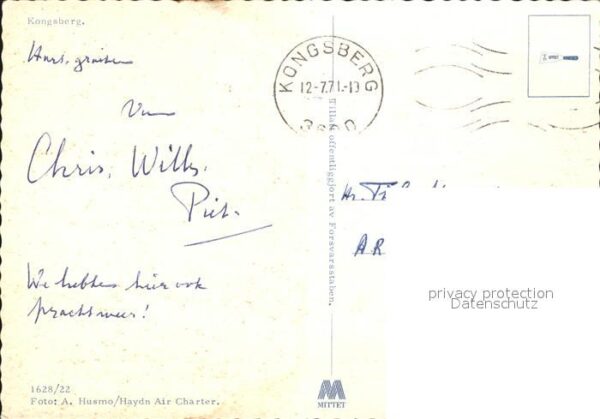 Kongsberg.
Hart. groeten
Van
Chris, Willy,
Piet.
We hebben hier ook
prachtweer!
1628/22
Foto: A. Husmo/Haydn Air Charter.
KONGSBERG
12-7.71.-19
3600
Tillatt offentliggjort av Forsvarsstaben.
AR
privacy protection
Datenschutz
MITTET